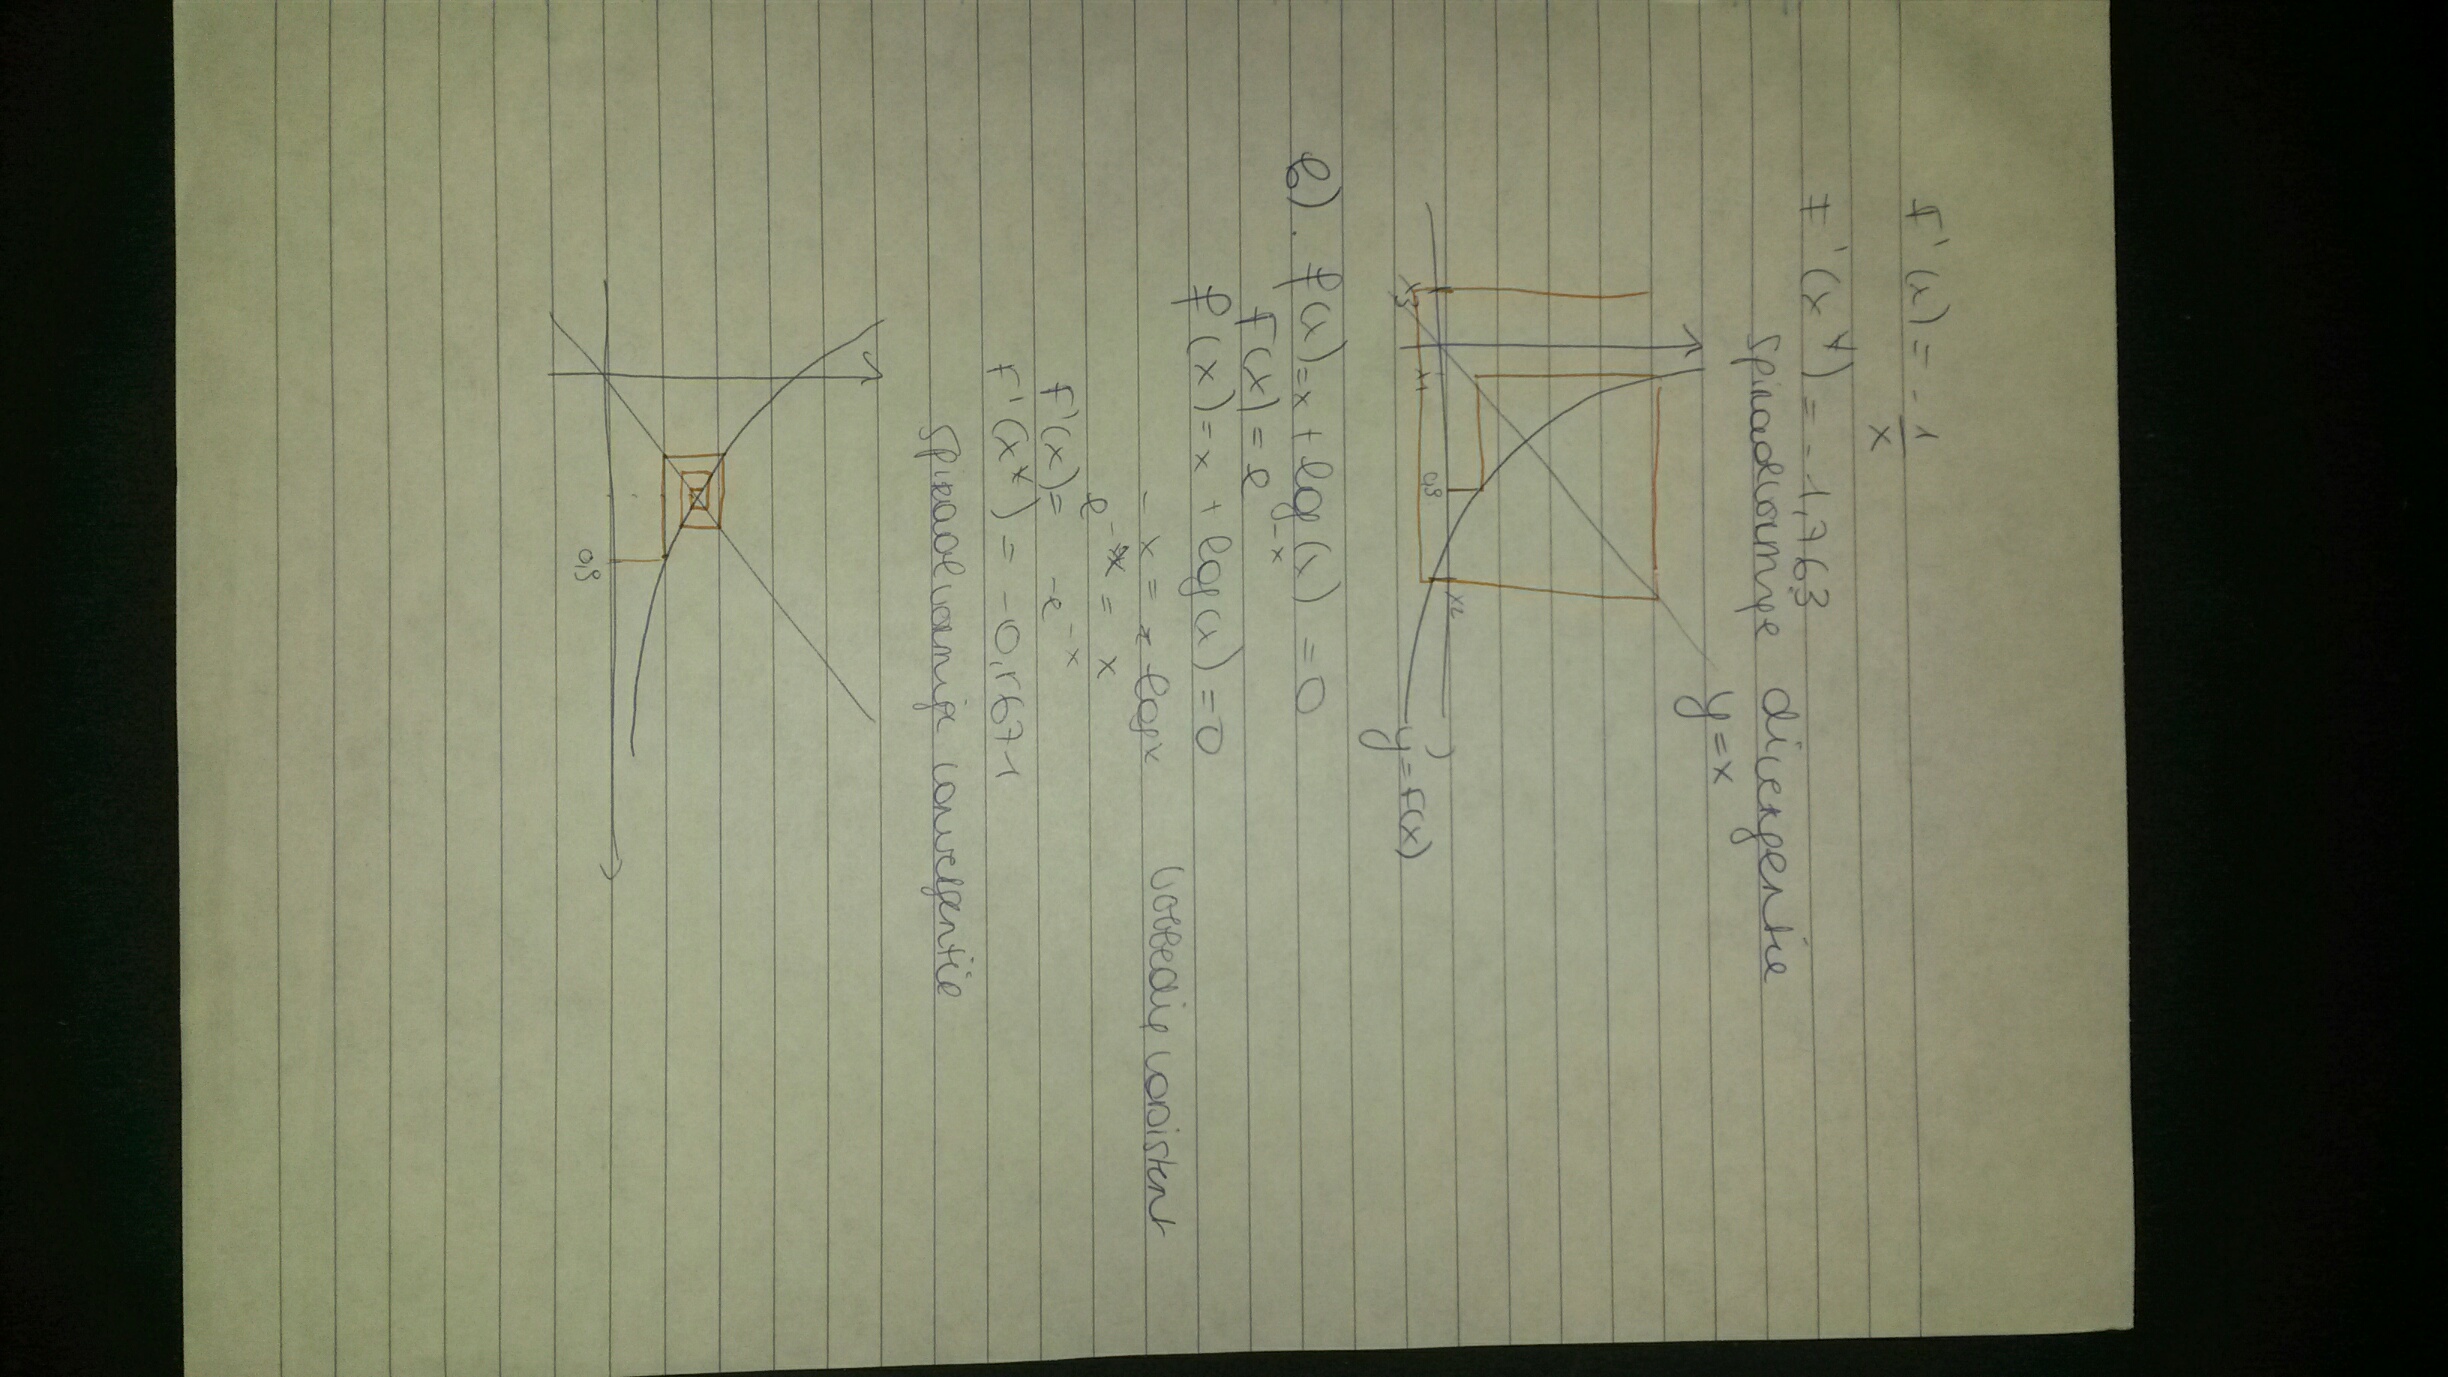 F'(x) = -1/x
F'(x*) = -1,763
Spiraalvormige divergentie
y=x
x3
x1
0,9
x2
y=F(x)
b). f(x)=x+log(x)=0
F(x)=e^-x
f(x)=x+log(x)=0
-x = log x
volledig consistent
e^-x = x
F'(x)= -e^-x
F'(x*) = -0,5671
Spiraalvormige convergentie
0,9